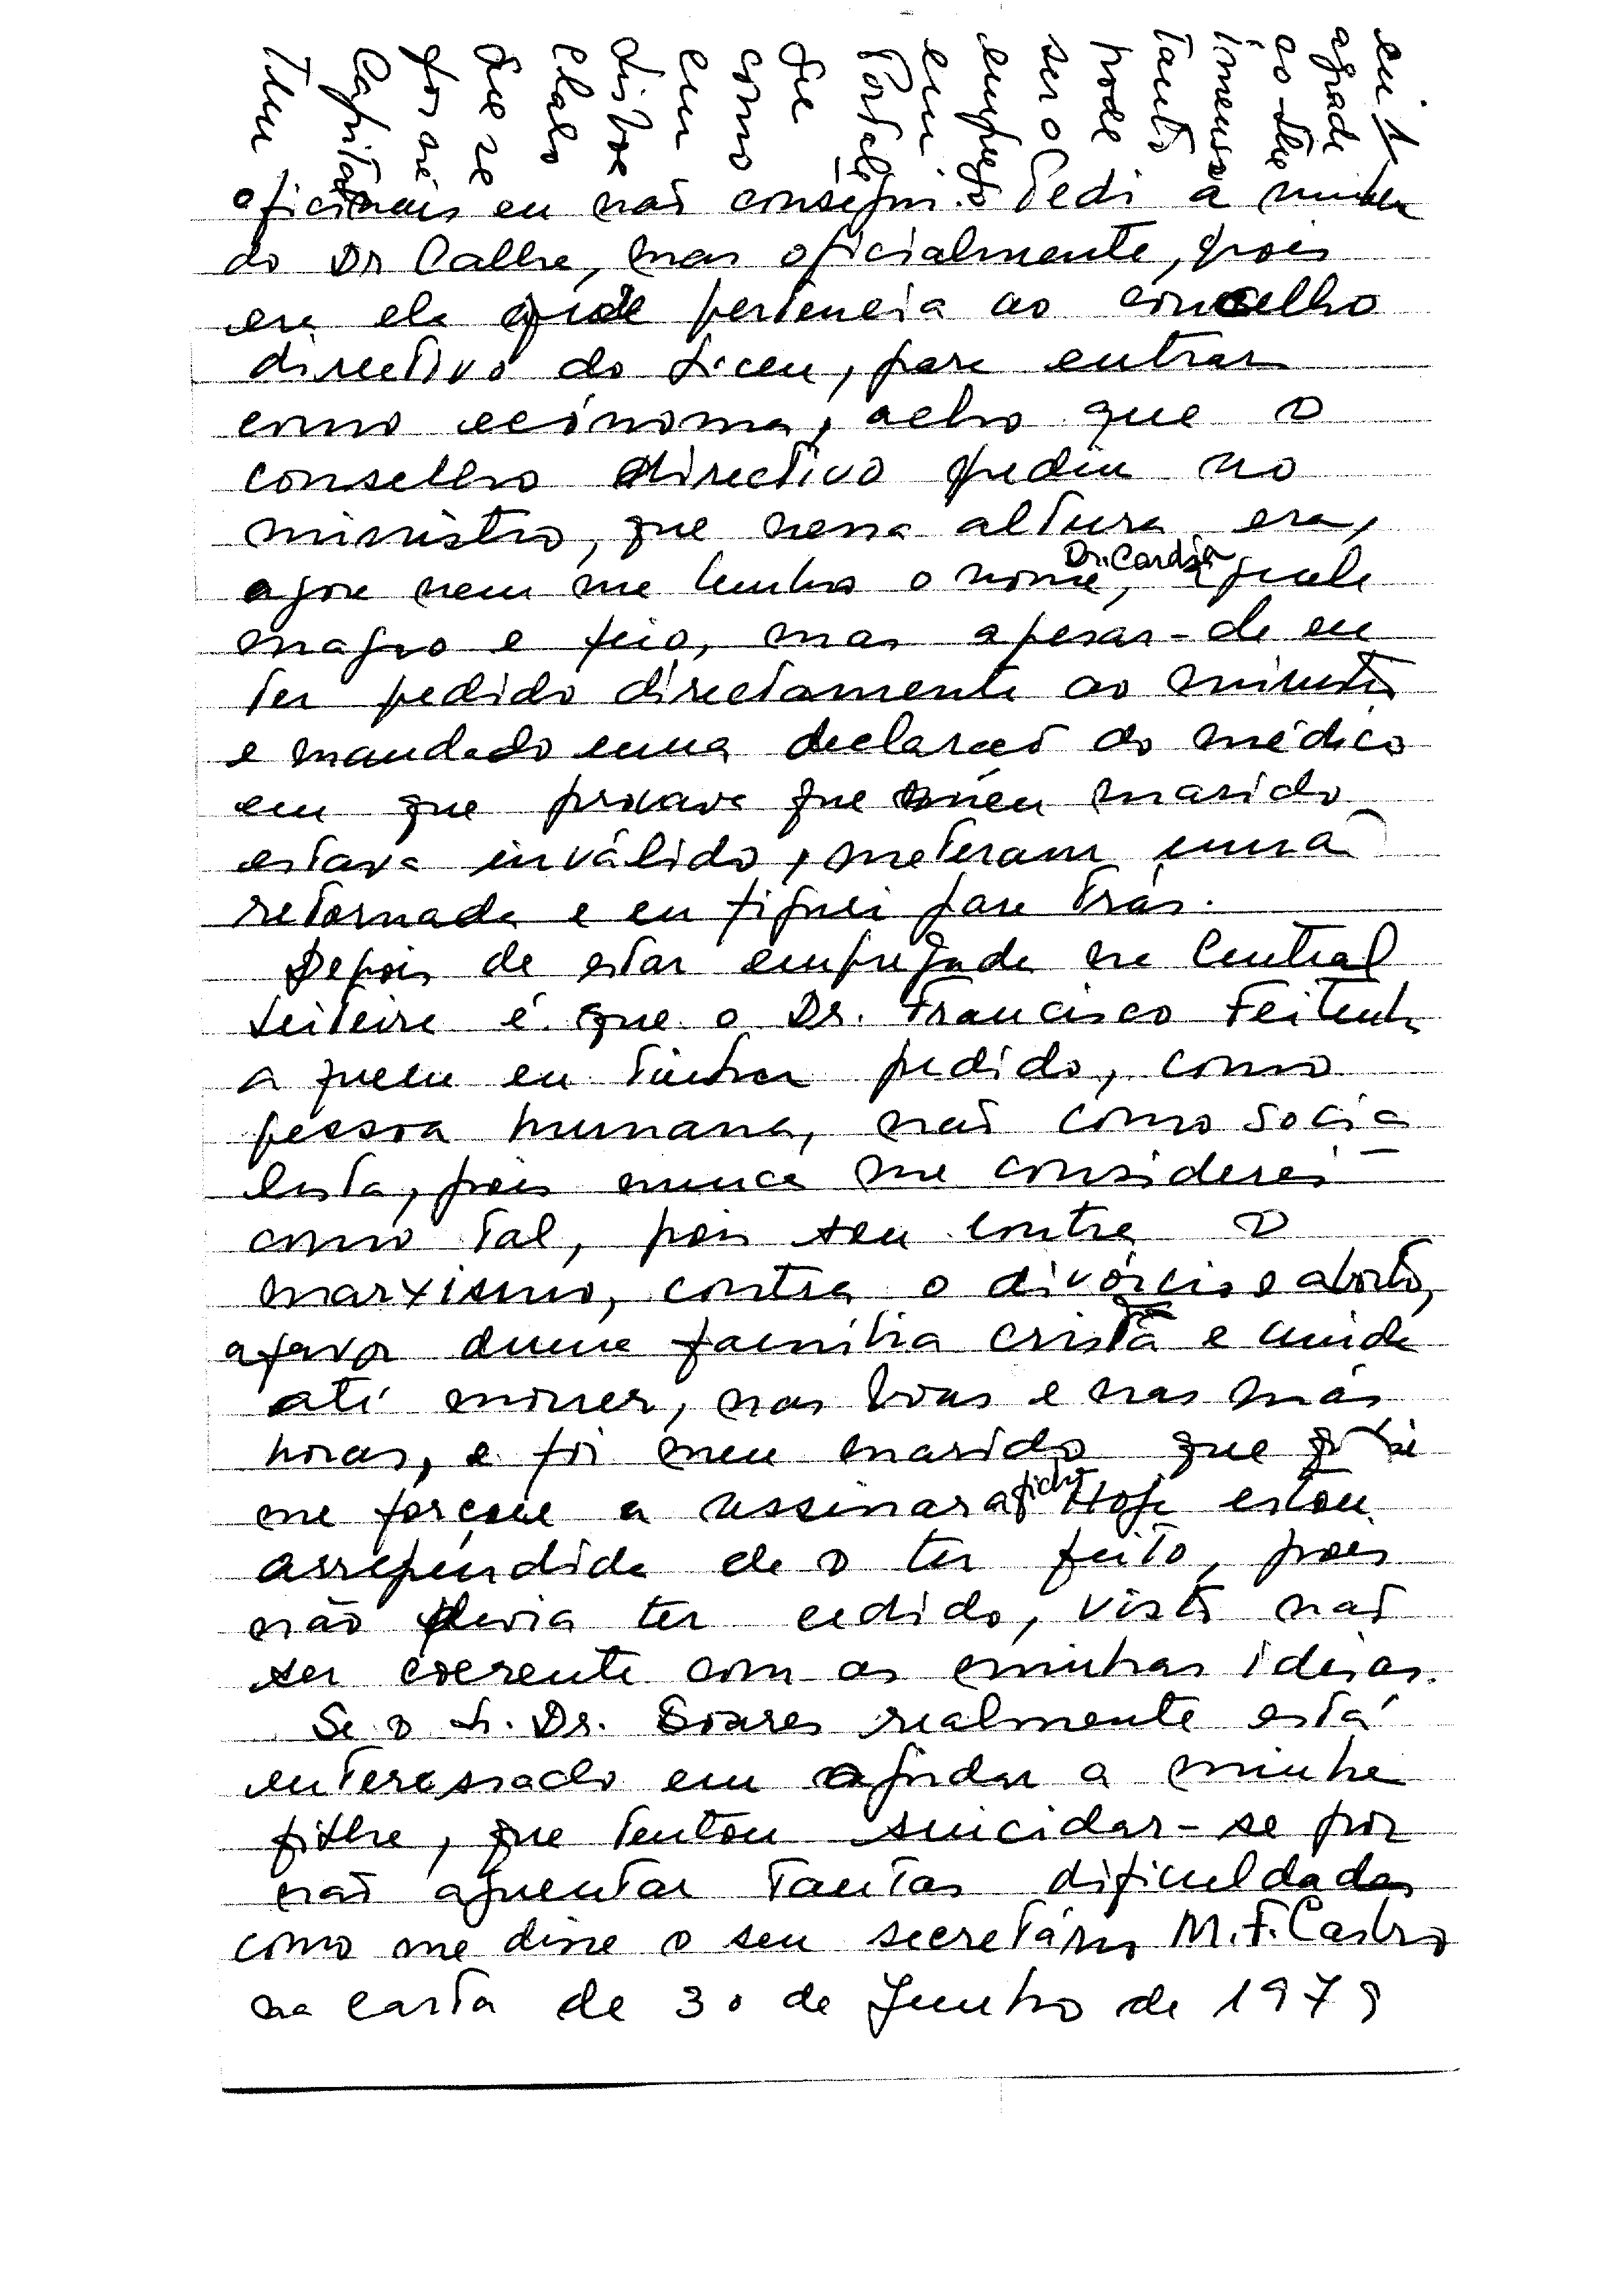 eu t
agrade
ao Sr
imenso
tanto
pode
ser o
emprego
em
Portale
que
como
em
Lisboa
claro
que se
for na
Capital
tem
oficinais eu não consegui. Pedi a mulher
do Dr Calhe, mas oficialmente, pois
era ela quem pertencia ao concelho
directivo do Liceu, para entrar
como ecónoma, acho que o
conselho directivo pediu ao
ministro, que nessa altura era,
agora nem me lembra o nome, Dr. Cardia aquele
magro e feio, mas apesar-de eu
ter pedido directamente ao ministro
e mandado uma declaração do médico
em que provava que meu marido
estava inválido, meteram uma
retornada e eu fiquei para trás.
Depois de estar empregada na Central
Leiteira é que o Dr. Francisco
a quem eu tinha pedido, como
pessoa humana, não como socia
lista, pois nunca me considerei
como tal, pois sou contra o
marxismo, contra o divórcio o aborto,
a favor duma família cristã e unida
até morrer, nas boas e nas más
horas, e foi meu marido que
me forçou a assinar a ficha Hoje estou
arrependida de o ter feito, pois
não devia ter cedido, visto não
ser coerente com as minhas ideias.
Se o Sr. Dr. Soares realmente está
enteressado em ajudar a minha
filha, que tentou suicidar-se por
não aguentar tantas dificuldades
como me disse o seu secretário M.F. Castro
na carta de 30 de Junho de 1979